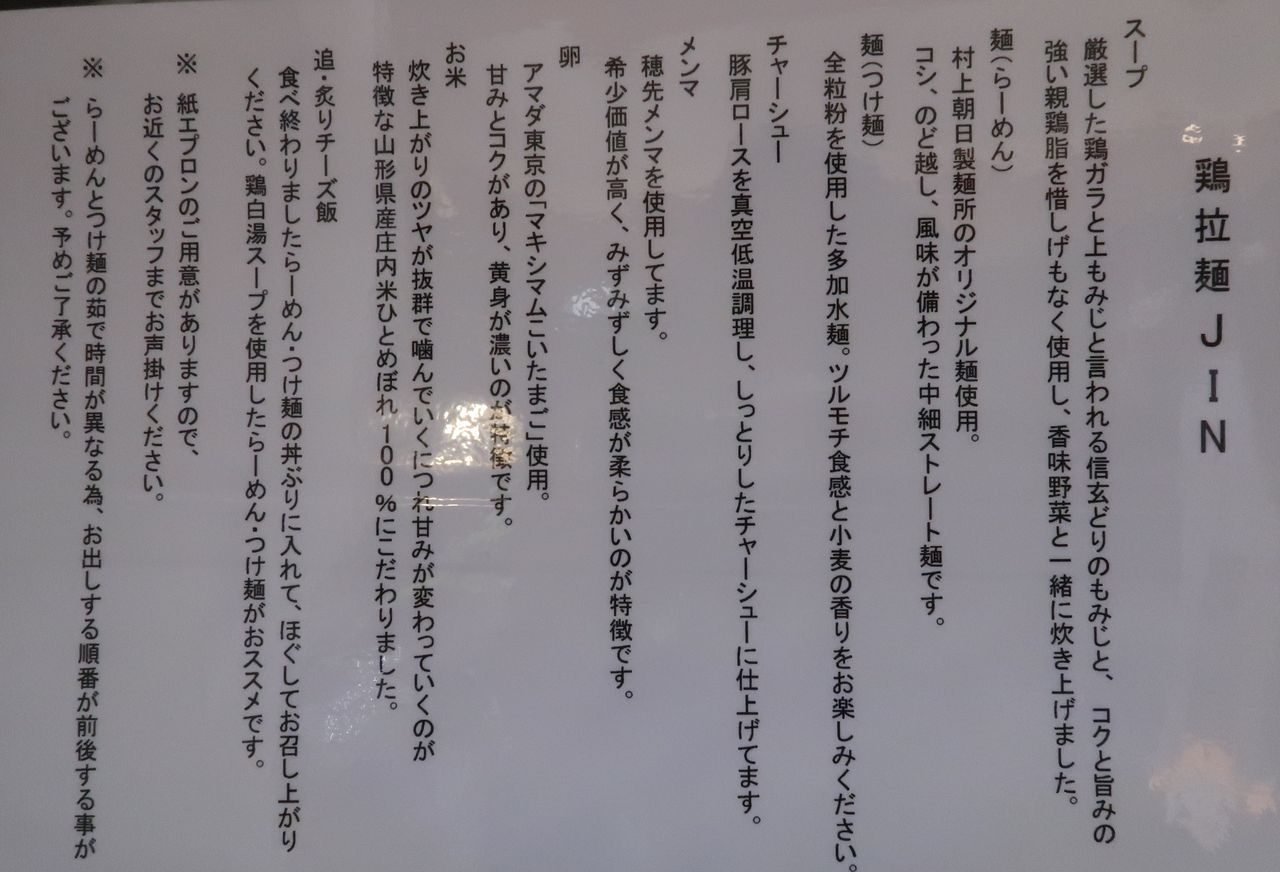 鶏拉麺 JIN
スープ
厳選した鶏ガラと上もみじと言われる信玄どりのもみじと、コクと旨みの
強い親鶏脂を惜しげもなく使用し、香味野菜と一緒に炊き上げました。
麺(らーめん)
村上朝日製麺所のオリジナル麺使用。
コシ、のど越し、風味が備わった中細ストレート麺です。
麺(つけ麺)
全粒粉を使用した多加水麺。ツルモチ食感と小麦の香りをお楽しみください。
チャーシュー
豚肩ロースを真空低温調理し、しっとりしたチャーシューに仕上げてます。
メンマ
穂先メンマを使用してます。
希少価値が高く、みずみずしく食感が柔らかいのが特徴です。
卵
アマダ東京の「マキシマムこいたまご」使用。
甘みとコクがあり、黄身が濃いのが特徴です。
お米
炊き上がりのツヤが抜群で噛んでいくにつれ甘みが変わっていくのが
特徴な山形県産庄内米ひとめぼれ100%にこだわりました。
追・炙りチーズ飯
食べ終わりましたらーめん・つけ麺の丼ぶりに入れて、ほぐしてお召し上がり
ください。鶏白湯スープを使用したらーめん・つけ麺がおススメです。
※ 紙エプロンのご用意がありますので、
お近くのスタッフまでお声掛けください。
※ らーめんとつけ麺の茹で時間が異なる為、お出しする順番が前後する事が
ございます。予めご了承ください。